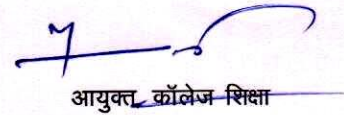 आयुक्त कॉलेज शिक्षा